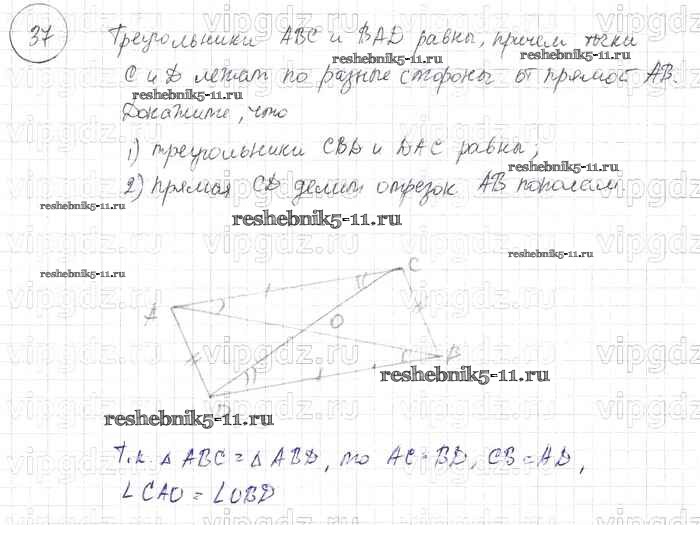 37
Треугольники ABC и BAD равны, причем точки
reshebnik5-11.ru
reshebnik5-11.ru
C и D лежат по разные стороны от прямой AB.
reshebnik5-11.ru
Докажите, что
1) треугольники CBD и DAC равны;
reshebnik5-11.ru
2) прямая CD делит отрезок AB пополам.
reshebnik5-11.ru
reshebnik5-11.ru
reshebnik5-11.ru
reshebnik5-11.ru
C
A
O
B
reshebnik5-11.ru
D
reshebnik5-11.ru
Т.к. △ ABC = △ ABD, то AC = BD, CB = AD,
∠CAO = ∠OBD
vipgdz.ru